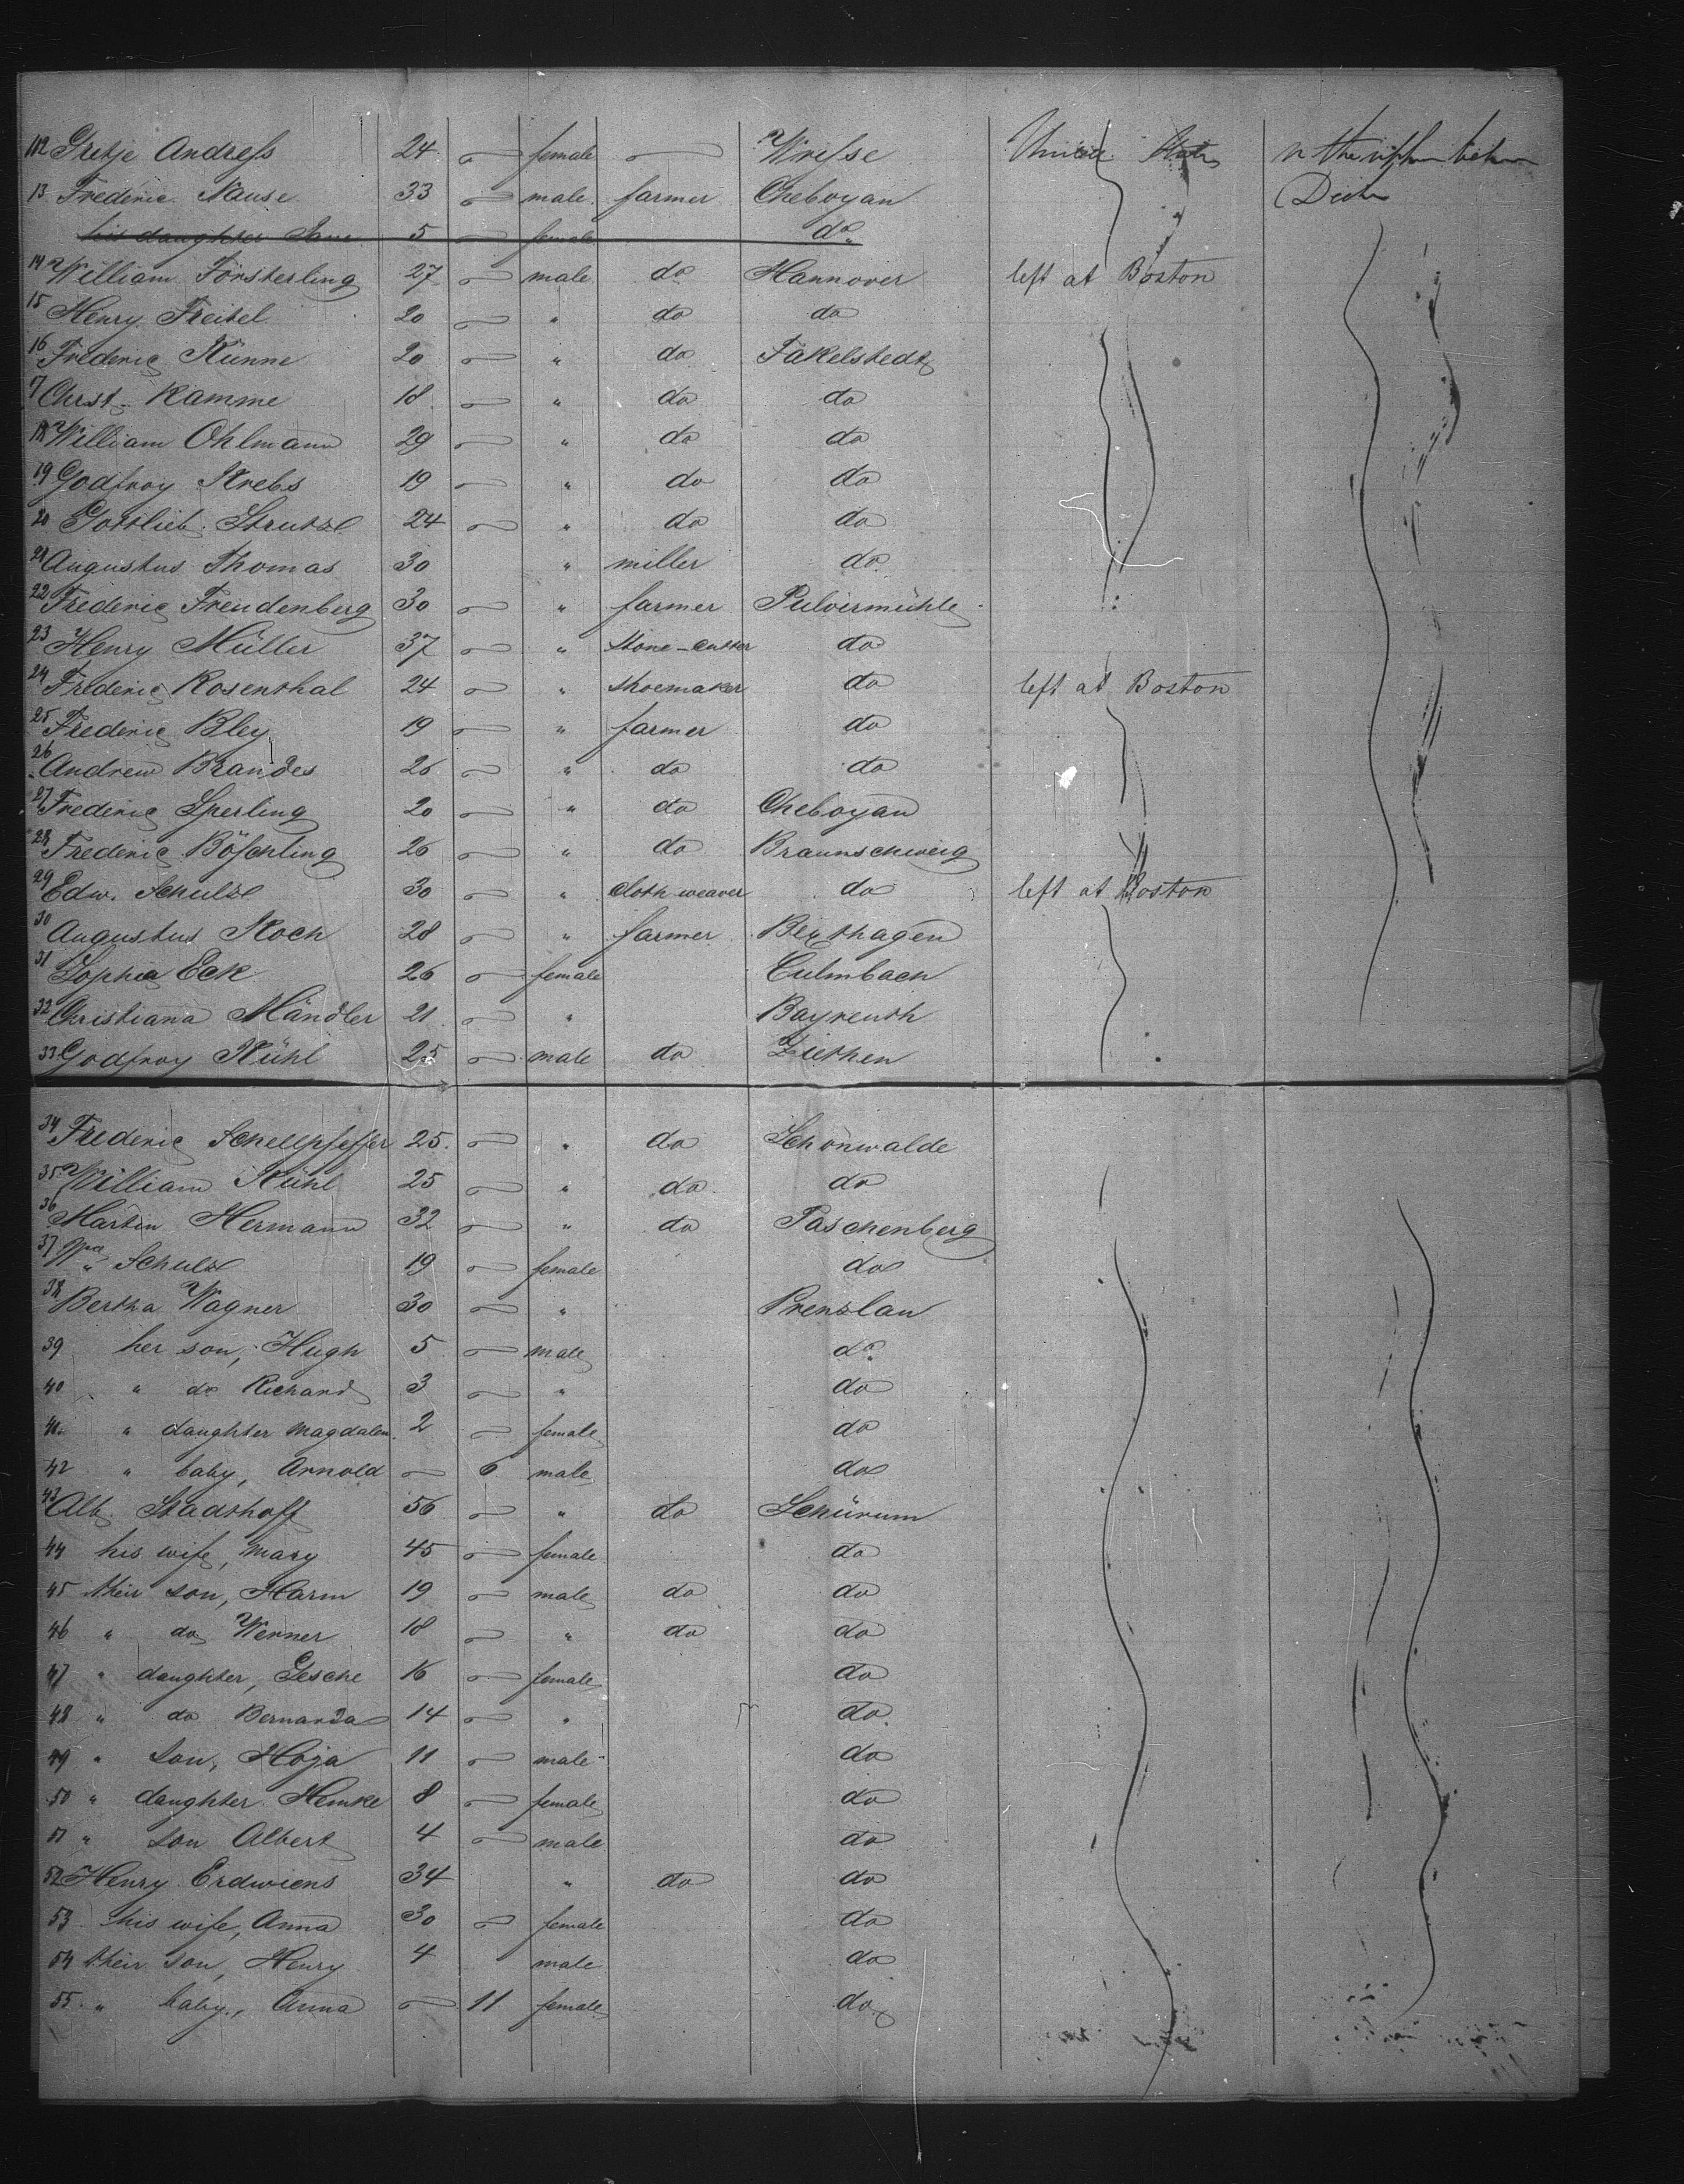 112 Gretje Andreſs 24 female Wriſse United States in the upper between
13 Frederic Nause 33 male farmer Cheboyan Decks
his daughter Jane 5 female do
14 William Försterling 27 male do Hannover left at Boston
15 Henry Freitel 20 " do do
16 Frederic Künne 20 " do Fäkelstedt
17 Christ. Kamme 18 " do do
18 William Ohlmann 29 " do do
19 Godfroy Krebs 19 " do do
20 Gottlieb Strutze 24 " do do
21 Augustus Thomas 30 " miller do
22 Frederic Freudenberg 30 " farmer Pulvermühle
23 Henry Müller 37 " stone-cutter do
24 Frederic Rosenthal 24 " shoemaker do left at Boston
25 Frederic Bley 19 " farmer do
26 Andrew Brandes 26 " do do
27 Frederic Sperling 20 " do Cheboyan
28 Frederic Böſchling 26 " do Braunschweig
29 Edw. Schulze 30 " cloth weaver do left at Boston
30 Augustus Koch 28 " farmer Bexthagen
31 Sophia Eck 26 female Culmbach
32 Christiana Mändler 21 " Bayreuth
33 Godfroy Kühl 25 male do Ziethen
34 Frederic Schellpfeffer 25 " do Schönwalde
35 William Kühl 25 " do do
36 Martin Hermann 32 " do Paschenberg
37 Schulz 19 female do
38 Bertha Wagner 30 " Prenzlau
39 her son, Hugh 5 male do
40 " do Richard 3 " do
41 " daughter Magdalen 2 female do
42 " baby, Arnold 6 male do
43 Alb. Stadthoff 56 " do Schürum
44 his wife, Mary 45 female do
45 their son, Harm 19 male do do
46 " do Werner 18 " do do
47 " daughter, Gesche 16 female do
48 " do Bernarda 14 " do
49 " son, Hoja 11 male do
50 " daughter Hemke 8 female do
51 " son Albert 4 male do
52 Henry Erdwiens 34 " do do
53 his wife, Anna 30 female do
54 their son, Henry 4 male do
55 " baby, Anna 11 female do